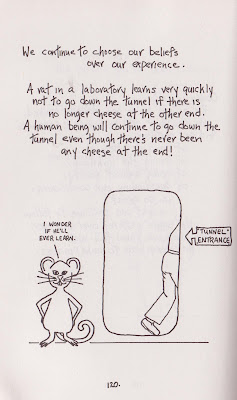 We continue to choose our beliefs
over our experience.
A rat in a laboratory learns very quickly
not to go down the tunnel if there is
no longer cheese at the other end.
A human being will continue to go down the
tunnel even though there's never been
any cheese at the end!
I WONDER
IF HE'LL
EVER LEARN.
"TUNNEL"
ENTRANCE
120.